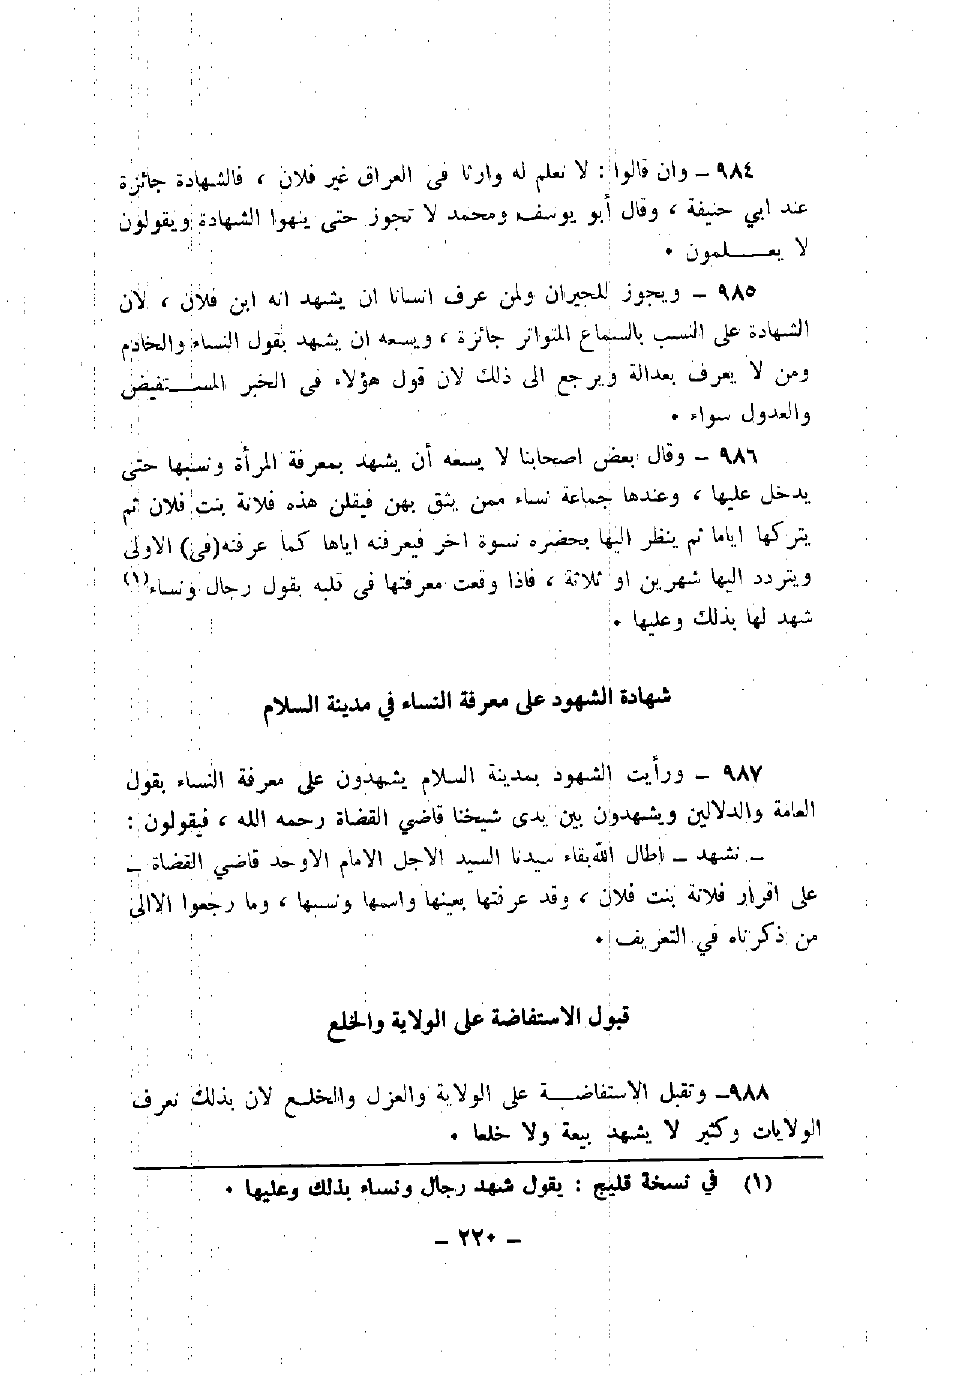 ٩٨٤ ــ وان قالوا : لا نعلم له وارثا فى العراق غير فلان ، فالشهادة جائزة
عند ابي حنيفة ، وقال أبو يوسف ومحمد لا تجوز حتى ينهوا الشهادة ويقولون
لا يعـــــلمون ٠
٩٨٥ ــ ويجوز للجيران ولمن عرف انسانا ان يشهد انه ابن فلان ، لان
الشهادة على النسب بالسماع المتواتر جائزة ، ويسعه ان يشهد بقول النساء والخادم
ومن لا يعرف بعدالة ويرجع الى ذلك لان قول هؤلاء فى الخبر المســـتفيض
والعدول سواء ٠
٩٨٦ ــ وقال بعض اصحابنا لا يسعه أن يشهد بمعرفة المرأة ونسبها حتى
يدخل عليها ، وعندها جماعة نساء ممن يثق بهن فيقلن هذه فلانة بنت فلان ثم
يتركها اياما ثم ينظر اليها بحضره نسوة اخر فيعرفنه اياها كما عرفنه(فى) الاولى
ويتردد اليها شهرين او ثلاثة ، فاذا وقعت معرفتها فى قلبه بقول رجال ونساء(١)
شهد لها بذلك وعليها ٠
شهادة الشهود على معرفة النساء في مدينة السلام
٩٨٧ ــ ورأيت الشهود بمدينة السلام يشهدون على معرفة النساء بقول
العامة والدلالين ويشهدون بين يدى شيخنا قاضي القضاة رحمه الله ، فيقولون :
ــ نشهد ــ اطال الله بقاء سيدنا السيد الاجل الامام الاوحد قاضي القضاة ــ
على اقرار فلانة بنت فلان ، وقد عرفتها بعينها واسمها ونسبها ، وما رجعوا الا الى
من ذكرناه في التعريف ٠
قبول الاستفاضة على الولاية والخلع
٩٨٨ــ وتقبل الاستفاضـــة على الولاية والعزل والخلـع لان بذلك تعرف
الولايات وكثير لا يشهد بيعة ولا خلعا ٠
(١) في نسخة قليج : يقول شهد رجال ونساء بذلك وعليها ٠
ــ ٢٢٠ ــ